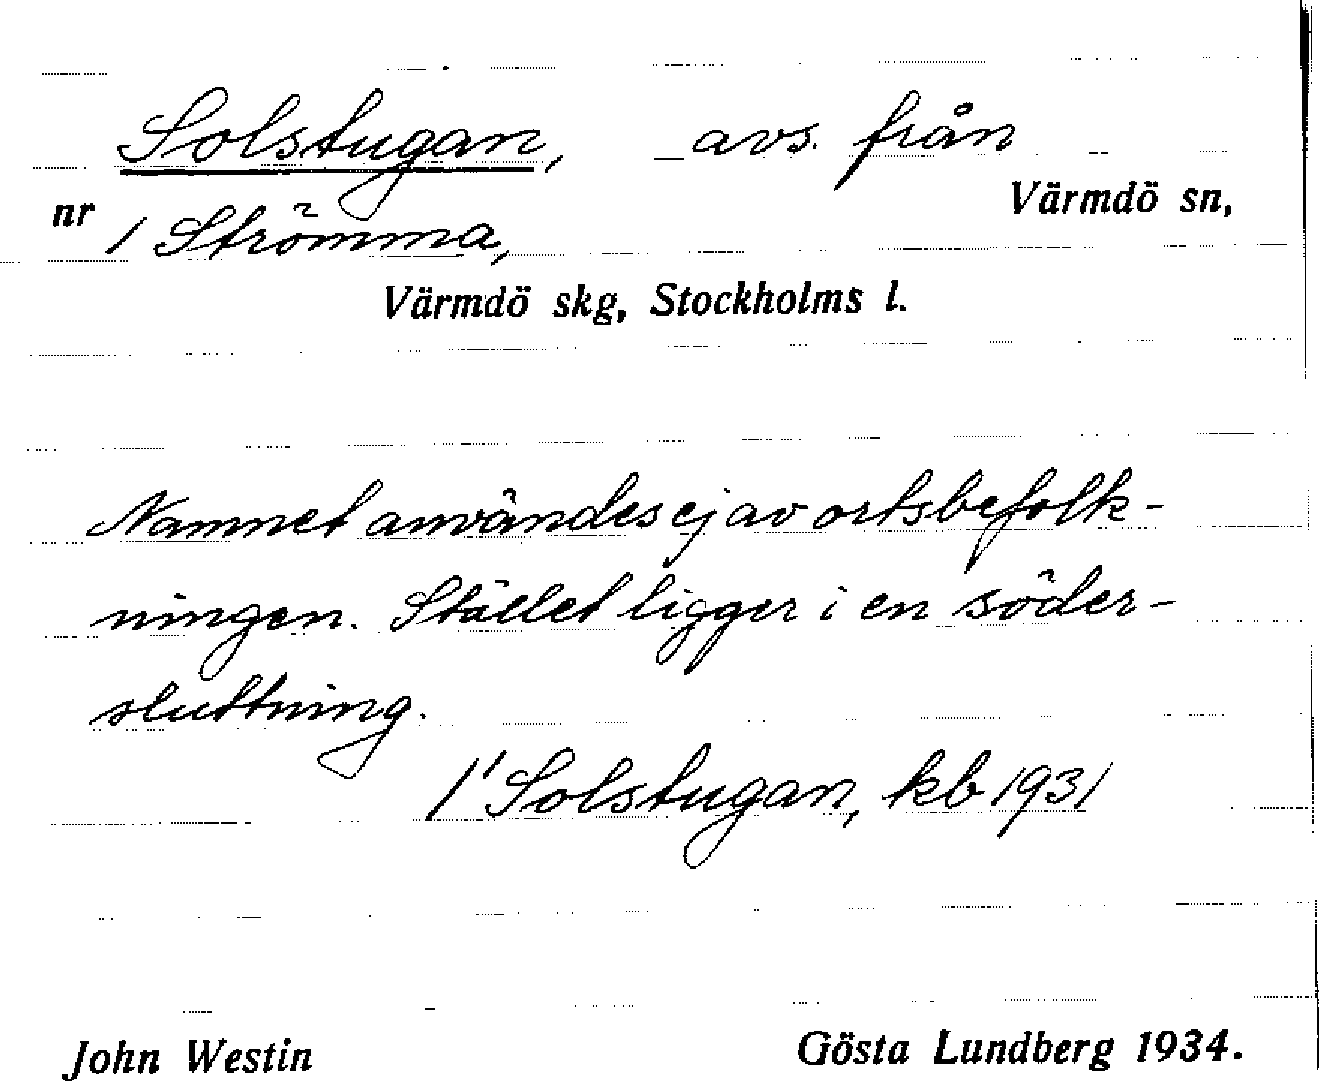 Solstugan, avs. från
Värmdö sn,
nr 1 Strömma,
Värmdö skg, Stockholms l.
Namnet användes ej av ortsbefolk-
ningen. Stället ligger i en söder-
sluttning.
/' Solstugan, kb 1931
John Westin Gösta Lundberg 1934.